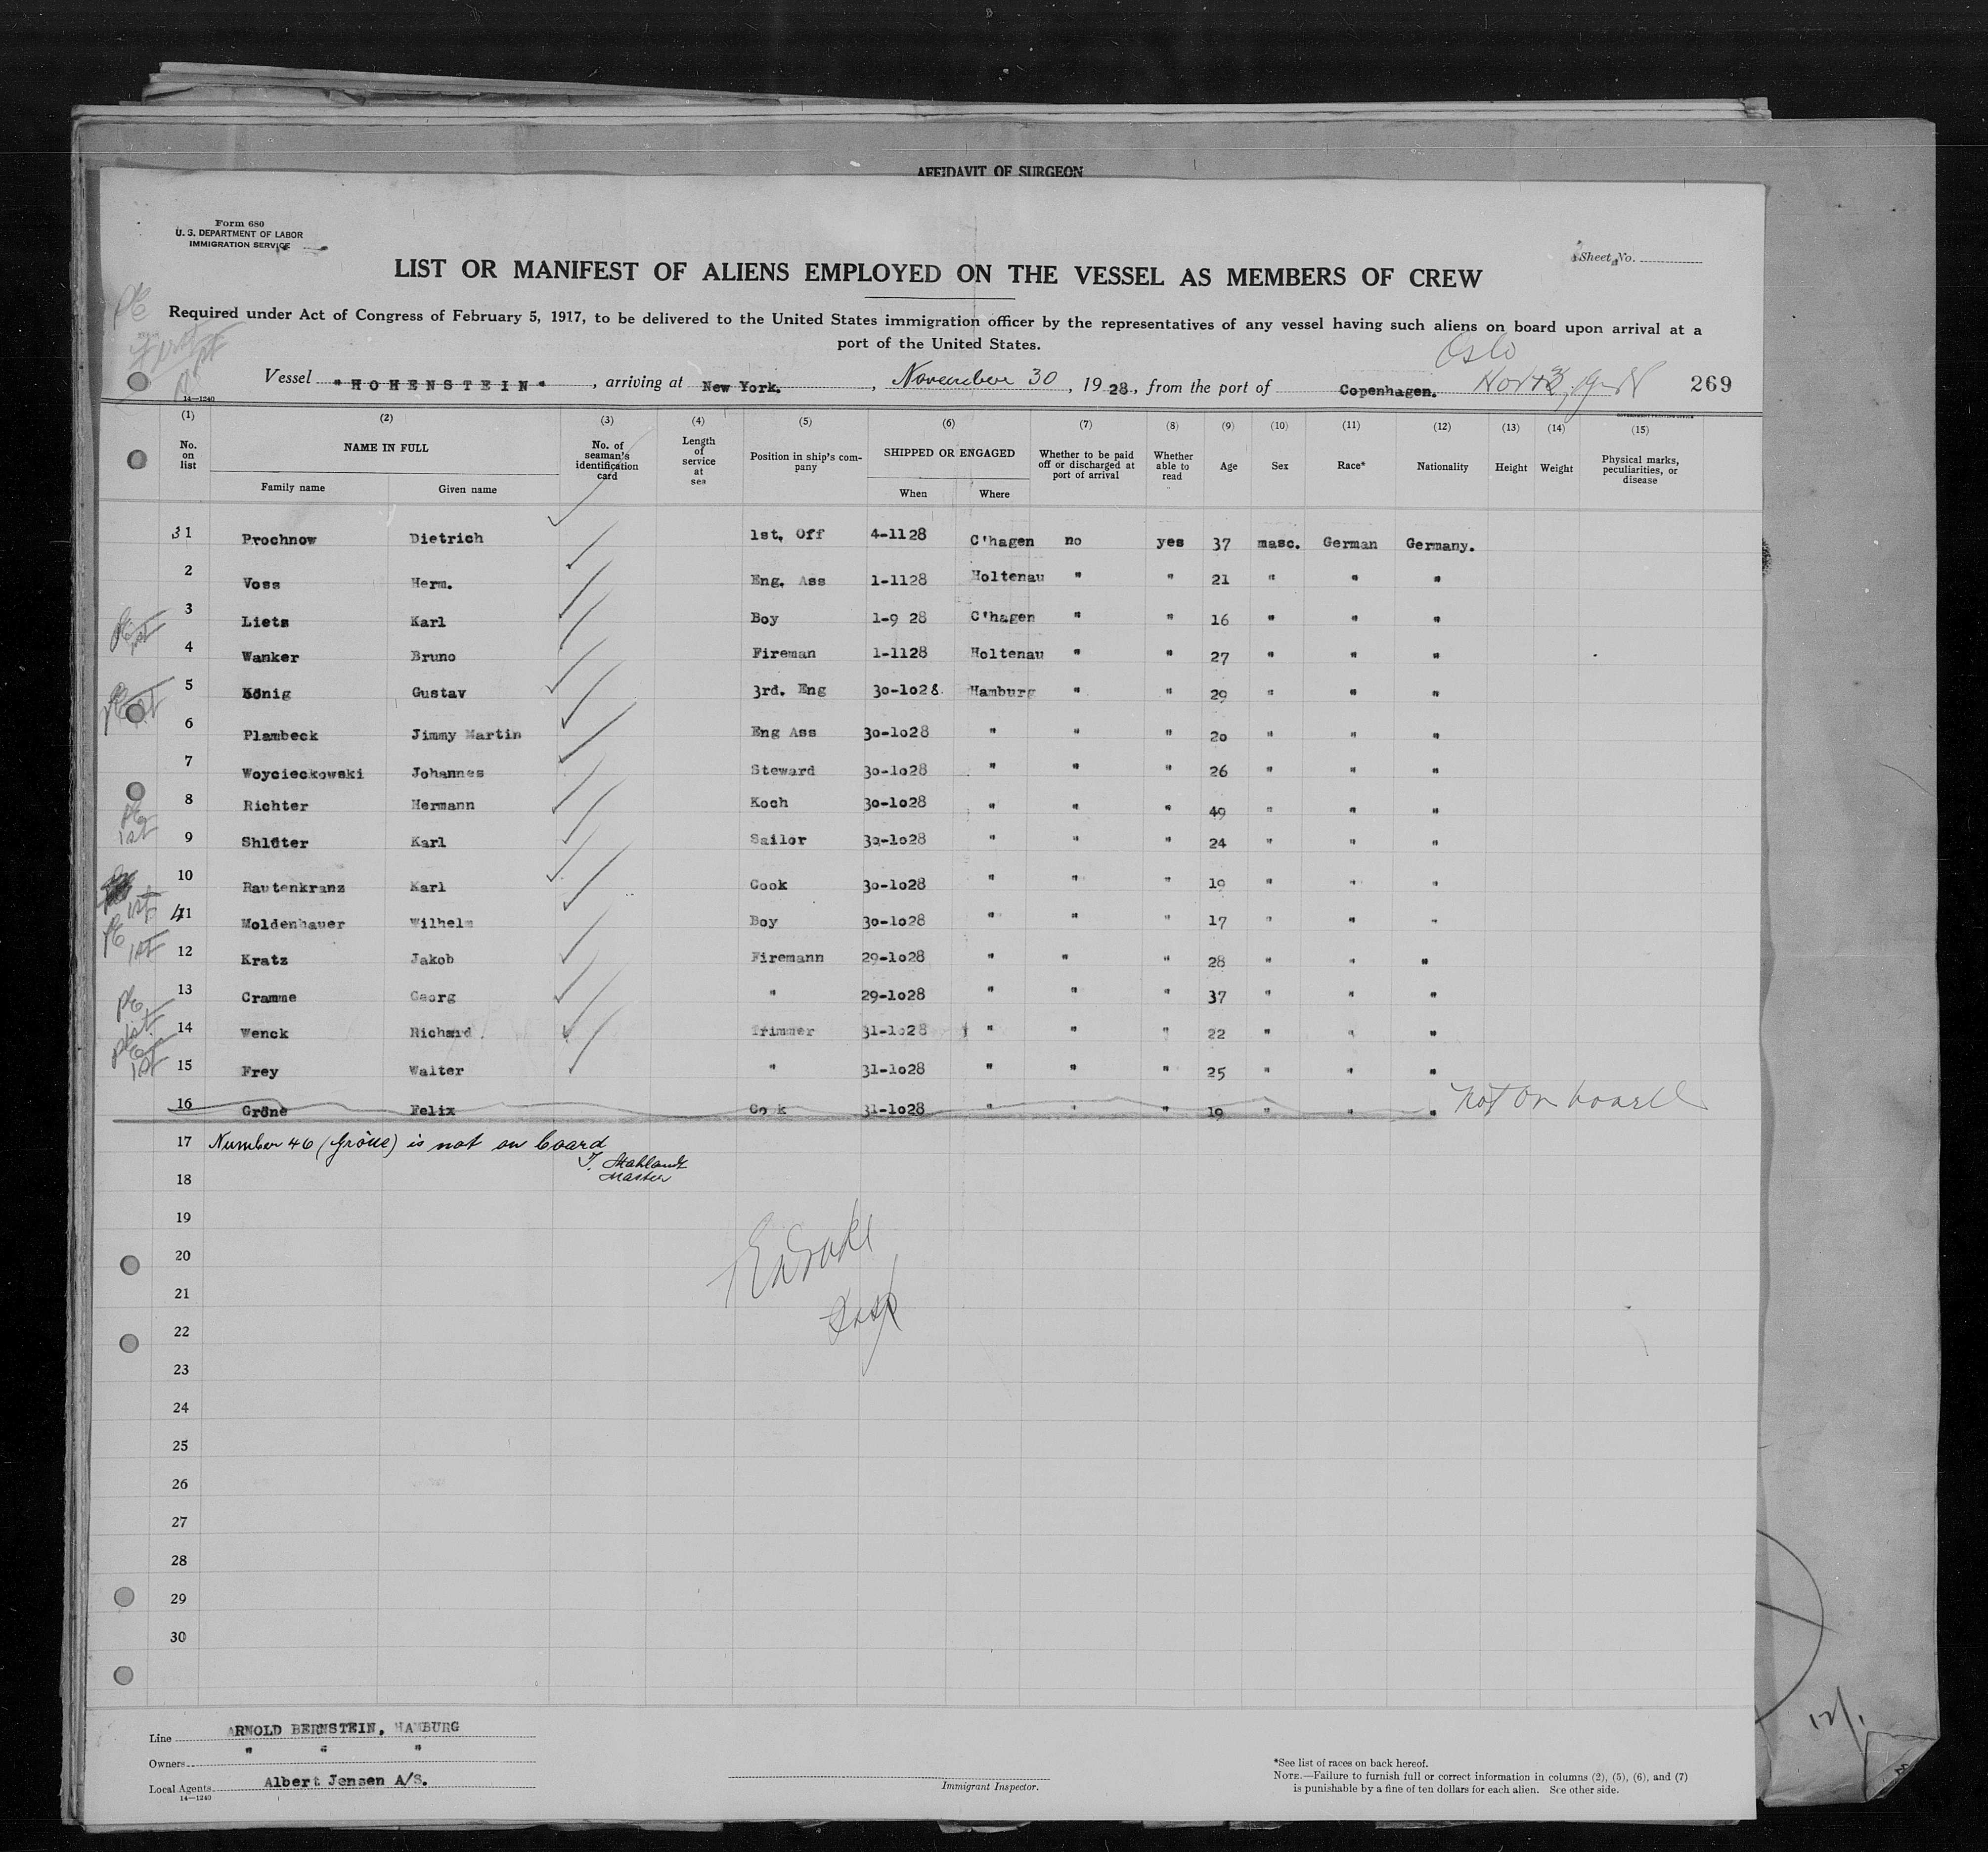 AFFIDAVIT OF SURGEON
Form 680
U. S. DEPARTMENT OF LABOR
IMMIGRATION SERVICE
Sheet No.
LIST OR MANIFEST OF ALIENS EMPLOYED ON THE VESSEL AS MEMBERS OF CREW
Required under Act of Congress of February 5, 1917, to be delivered to the United States immigration officer by the representatives of any vessel having such aliens on board upon arrival at a
port of the United States.
Oslo
Vessel "HOHENSTEIN" , arriving at New York. , November 30 , 1928, from the port of Copenhagen. 269
14—1240
(1) (2) (3) (4) (5) (6) (7) (8) (9) (10) (11) (12) (13) (14) (15)
No. on list NAME IN FULL Family name Given name No. of seaman's identification card Length of service at sea Position in ship's company SHIPPED OR ENGAGED When Where Whether to be paid off or discharged at port of arrival Whether able to read Age Sex Race* Nationality Height Weight Physical marks, peculiarities, or disease
31 Prochnow Dietrich 1st. Off 4-1128 C'hagen no yes 37 masc. German Germany.
2 Voss Herm. Eng. Ass 1-1128 Holtenau " " 21 " " "
3 Liets Karl Boy 1-9 28 C'hagen " " 16 " " "
4 Wanker Bruno Fireman 1-1128 Holtenau " " 27 " " "
5 König Gustav 3rd. Eng 30-1028 Hamburg " " 29 " " "
6 Plambeck Jimmy Martin Eng Ass 30-1028 " " " 20 " " "
7 Woycieckowski Johannes Steward 30-1028 " " " 26 " " "
8 Richter Hermann Koch 30-1028 " " " 49 " " "
9 Shlüter Karl Sailor 30-1028 " " " 24 " " "
10 Rautenkranz Karl Cook 30-1028 " " " 19 " " "
41 Moldenhauer Wilhelm Boy 30-1028 " " " 17 " " "
12 Kratz Jakob Firemann 29-1028 " " " 28 " " "
13 Cramme Georg " 29-1028 " " " 37 " " "
14 Wenck Richard. Trimmer 31-1028 " " " 22 " " "
15 Frey Walter " 31-1028 " " " 25 " " "
16 Gröne Felix Cook 31-1028 " " " 19 " " " not on board
17 Number 46 (Gröne) is not on board
Master
18
19
20
21
22
23
24
25
26
27
28
29
30
Line ARNOLD BERNSTEIN, HAMBURG
Owners " " "
Local Agents Albert Jensen A/S.
14—1240
Immigrant Inspector.
*See list of races on back hereof.
NOTE.—Failure to furnish full or correct information in columns (2), (5), (6), and (7)
is punishable by a fine of ten dollars for each alien. See other side.
12/1